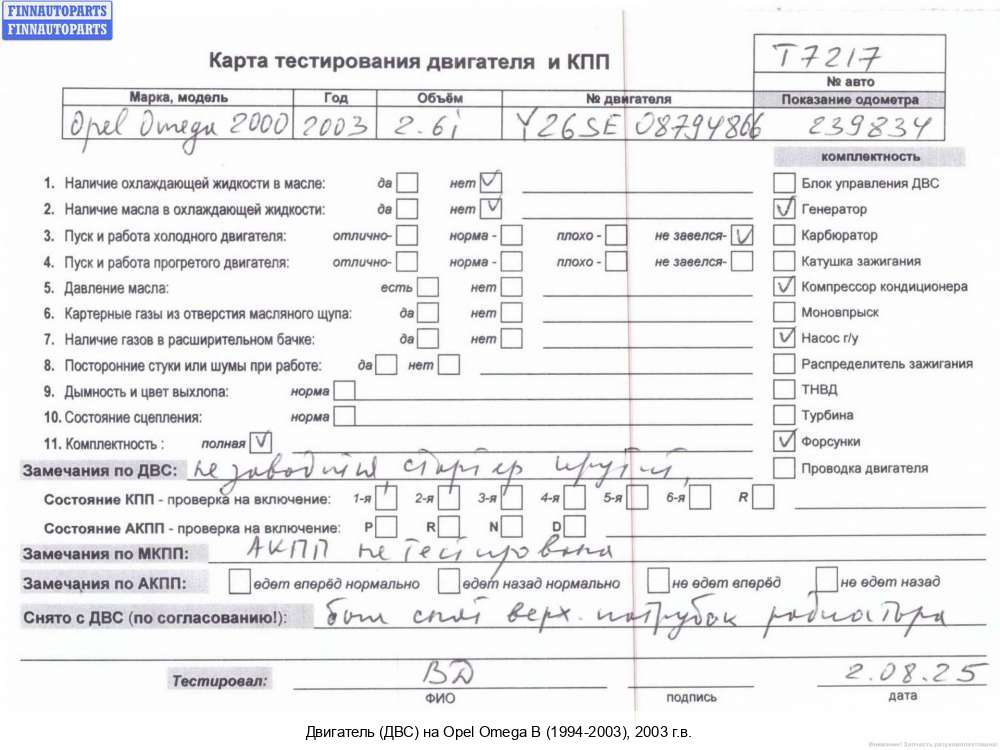 FINNAUTOPARTS
FINNAUTOPARTS
T7217
Карта тестирования двигателя и КПП
№ авто
Марка, модель Год Объём № двигателя Показание одометра
Opel Omega 2000 2003 2.6i Y26SE 08794866 239834
комплектность
1. Наличие охлаждающей жидкости в масле: да нет Блок управления ДВС
2. Наличие масла в охлаждающей жидкости: да нет Генератор
3. Пуск и работа холодного двигателя: отлично- норма - плохо - не завелся- Карбюратор
4. Пуск и работа прогретого двигателя: отлично- норма - плохо - не завелся- Катушка зажигания
5. Давление масла: есть нет Компрессор кондиционера
6. Картерные газы из отверстия масляного щупа: да нет Моновпрыск
7. Наличие газов в расширительном бачке: да нет Насос г/у
8. Посторонние стуки или шумы при работе: да нет Распределитель зажигания
9. Дымность и цвет выхлопа: норма ТНВД
10. Состояние сцепления: норма Турбина
11. Комплектность : полная Форсунки
Замечания по ДВС: не заводится, стартер крутит, Проводка двигателя
Состояние КПП - проверка на включение: 1-я 2-я 3-я 4-я 5-я 6-я R
Состояние АКПП - проверка на включение: P R N D
Замечания по МКПП: АКПП не тестирована
Замечания по АКПП: едет вперёд нормально едет назад нормально не едет вперёд не едет назад
Снято с ДВС (по согласованию!): был снят верх. патрубок радиатора
Тестировал: ВД 2.08.25
ФИО подпись дата
Двигатель (ДВС) на Opel Omega B (1994-2003), 2003 г.в.
Внимание! Запчасть разукомплектована!